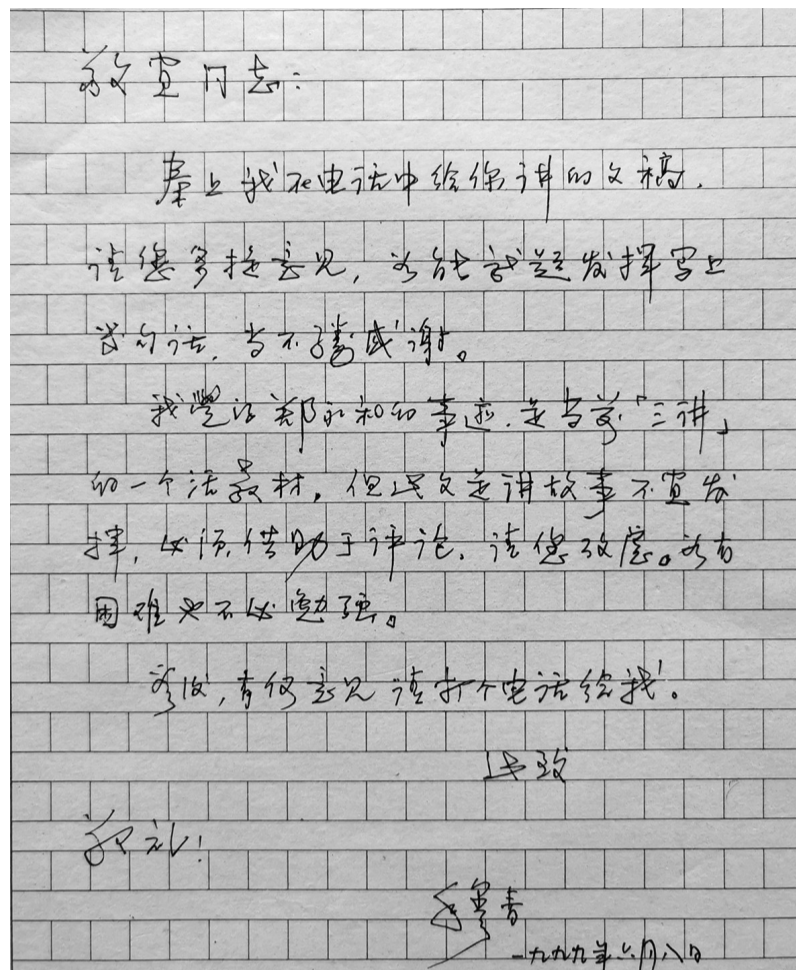 敬宜同志:
奉上我在电话中给你讲的文稿,
请您多提意见,若能就题发挥写上
几句话,当不胜感谢。
我觉得郑永和的事迹,是当前「三讲」
的一个活教材,但此文是讲故事不宜发
挥,必须借助于评论,请您考虑。若有
困难也不必勉强。
看后,有何意见请打个电话给我。
此致
敬礼!
穆青
一九九九年六月八日